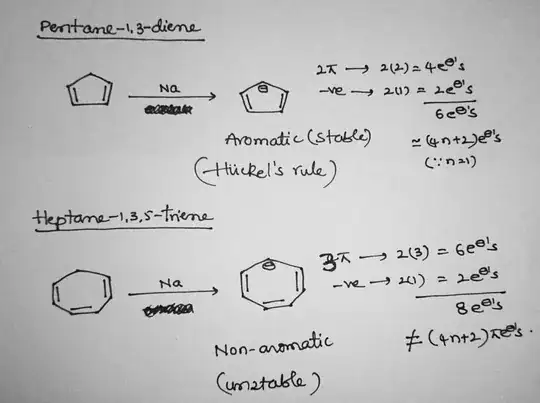 Pentane-1,3-diene
Na
⊖
2π → 2(2) = 4e⊖'s
-ve → 2(1) = 2e⊖'s
6e⊖'s
Aromatic (stable)
≃ (4n+2)e⊖'s
(Hückel's rule)
(∵ n=1)
Heptane-1,3,5-triene
Na
⊖
3π → 2(3) = 6e⊖'s
-ve → 2(1) = 2e⊖'s
8e⊖'s
Non-aromatic
≠ (4n+2)πe⊖'s.
(unstable)